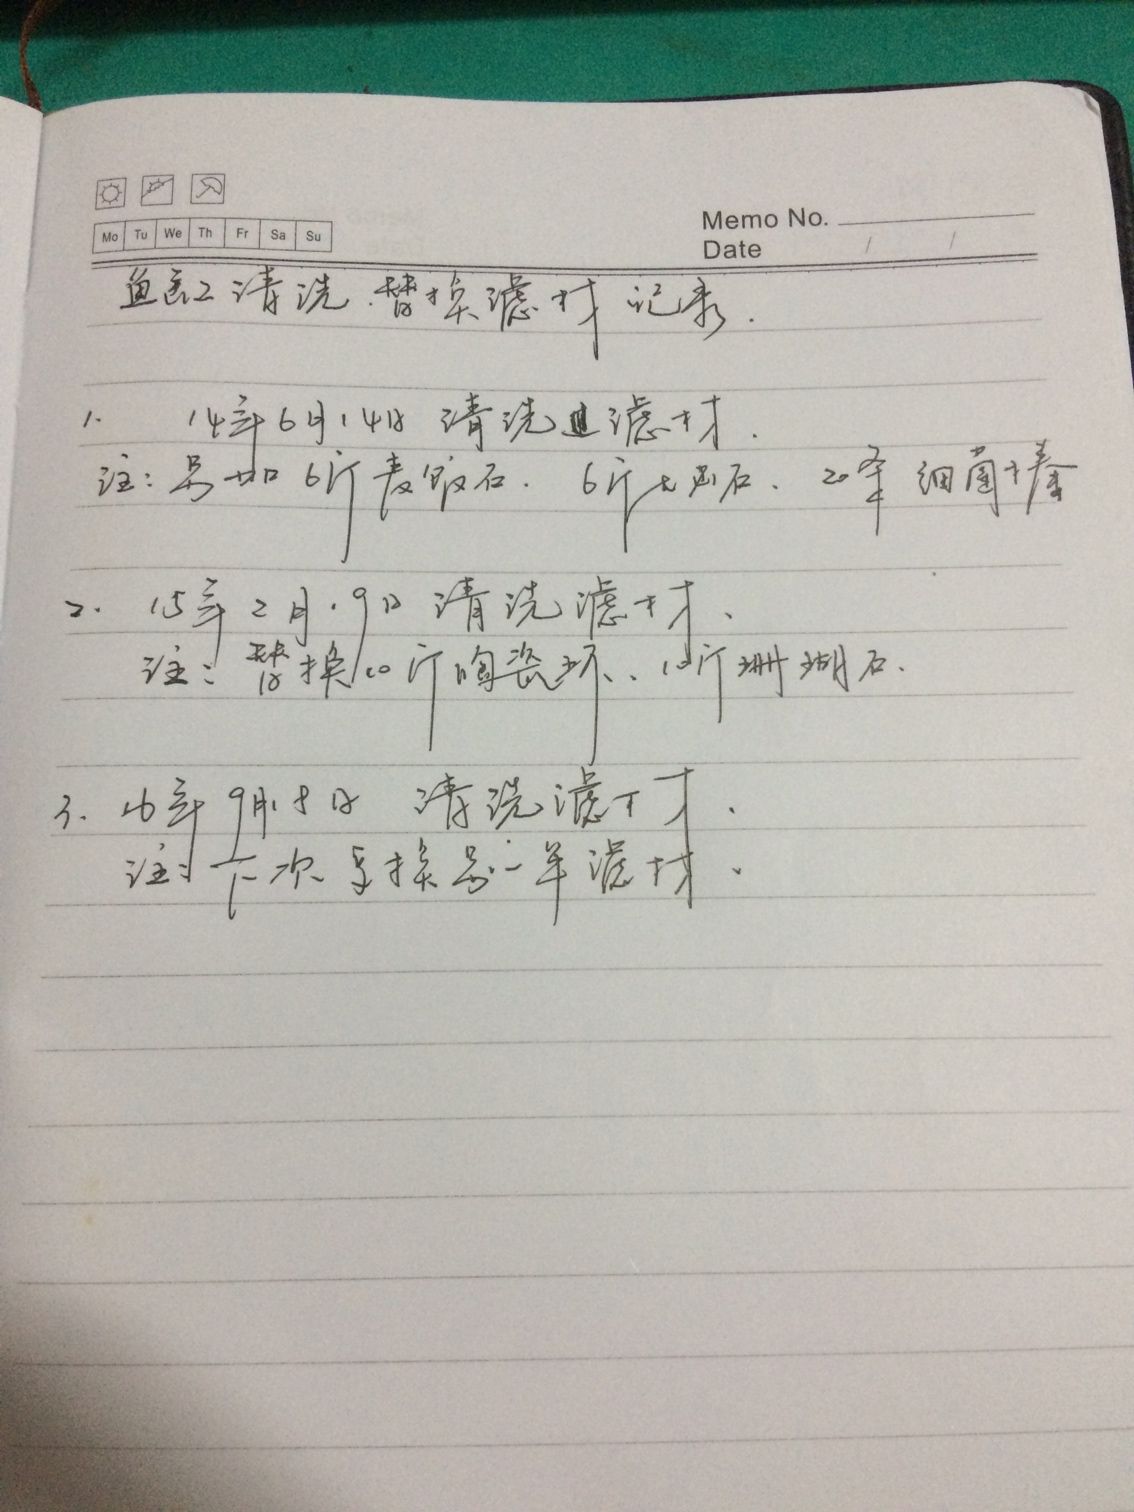 Mo Tu We Th Fr Sa Su
Memo No.
Date / /
鱼缸清洗.替换滤材记录.
1. 14年6月14日 清洗过滤材.
注:另加6斤麦饭石. 6斤火山石、20条细菌棒
2. 15年2月.9日 清洗滤材、
注:替换10斤陶瓷环、10斤珊瑚石.
3. 16年9月.8日 清洗滤材.
注:下次 换另一半滤材.